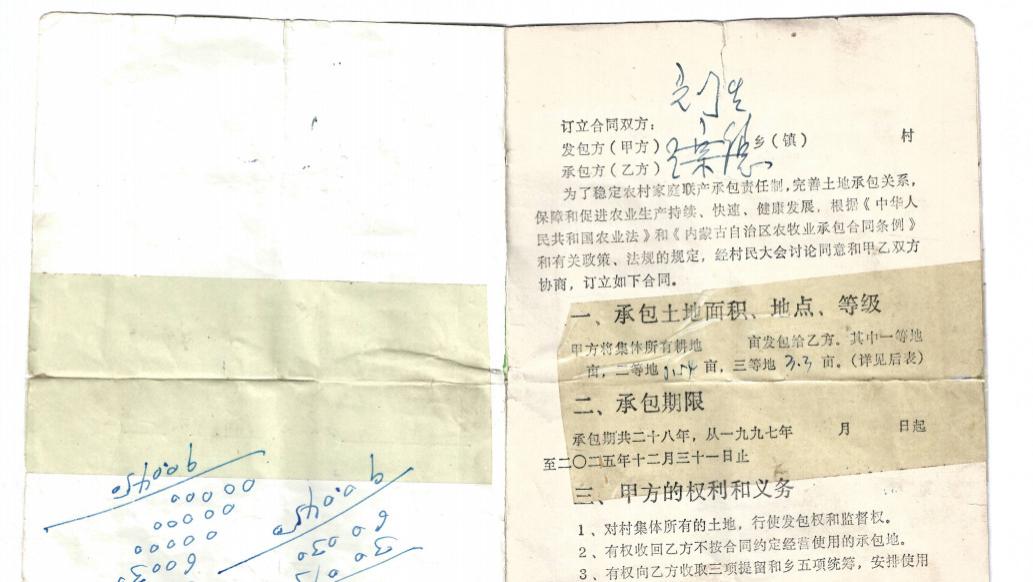 订立合同双方：
发包方（甲方） 乡（镇） 村
承包方（乙方）
为了稳定农村家庭联产承包责任制，完善土地承包关系，
保障和促进农业生产持续、快速、健康发展，根据《中华人
民共和国农业法》和《内蒙古自治区农牧业承包合同条例》
和有关政策、法规的规定，经村民大会讨论同意和甲乙双方
协商，订立如下合同。
一、承包土地面积、地点、等级
甲方将集体所有耕地 亩发包给乙方。其中一等地
亩，二等地 亩，三等地 3.3 亩。（详见后表）
二、承包期限
承包期共二十八年，从一九九七年 月 日起
至二〇二五年十二月三十一日止
三、甲方的权利和义务
1、对村集体所有的土地，行使发包权和监督权。
2、有权收回乙方不按合同约定经营使用的承包地。
3、有权向乙方收取三项提留和乡五项统筹，安排使用